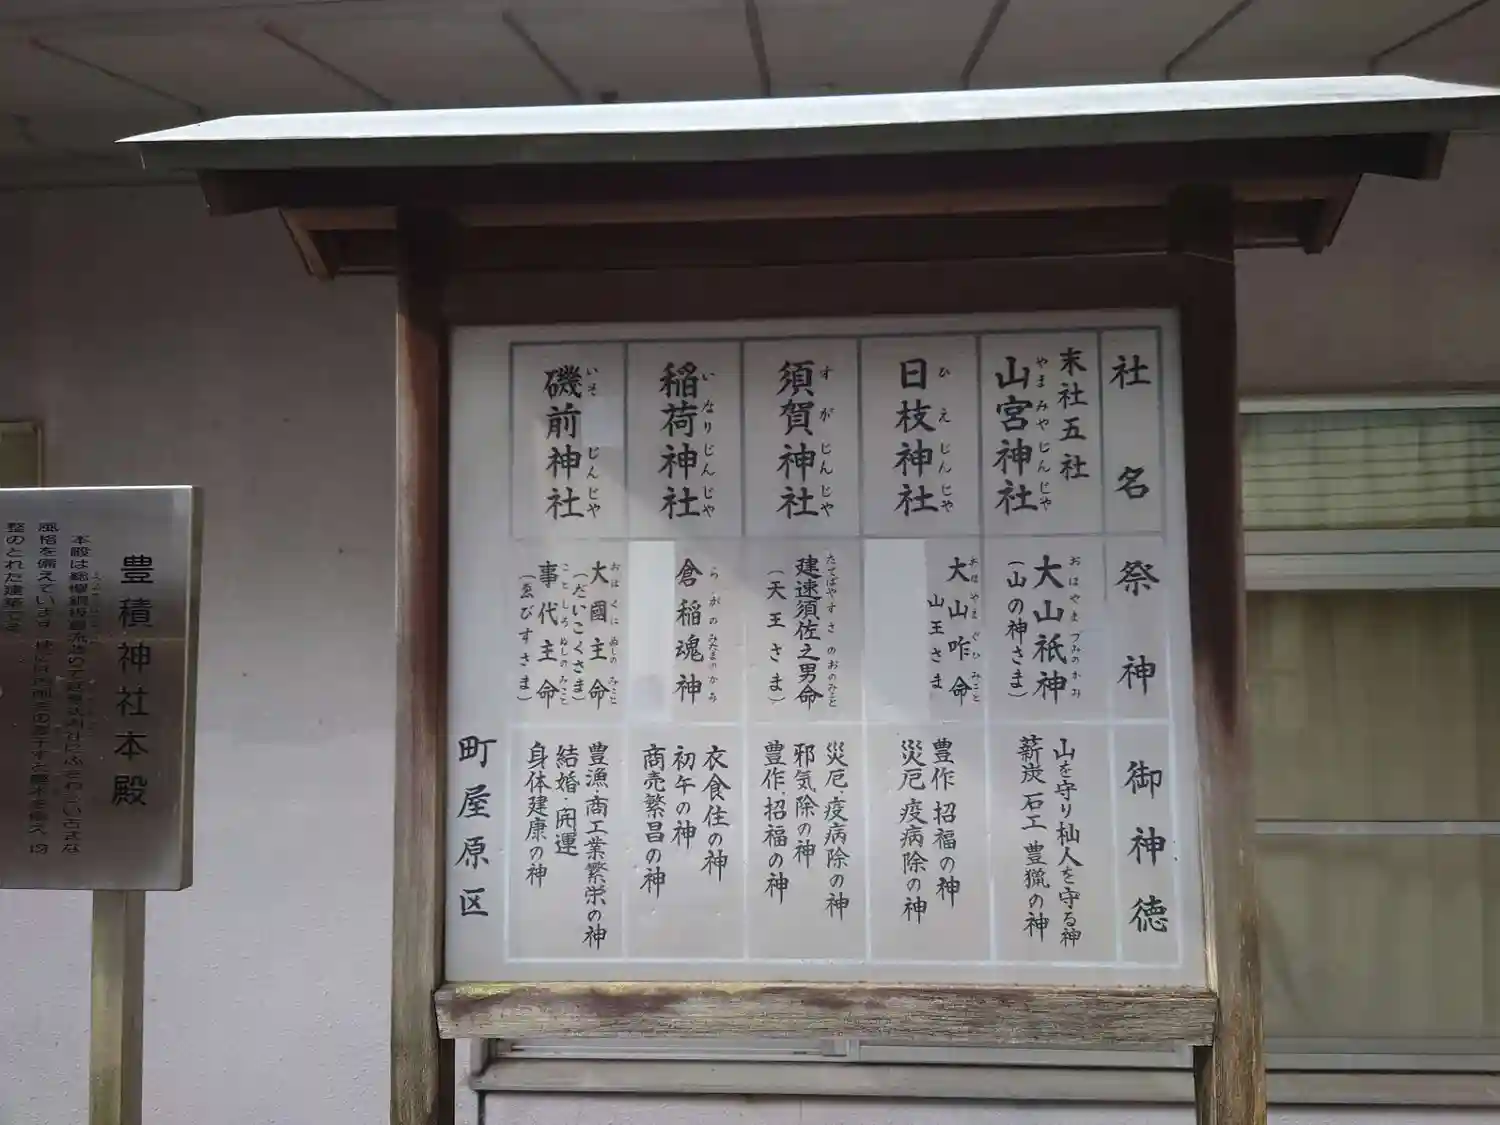 社名
祭神
御神徳
末社五社
山宮神社
やまみやじんじゃ
大山祇神
おほやまづみのかみ
（山の神さま）
山を守り杣人を守る神
薪炭 石工 豊猟の神
日枝神社
ひえじんじゃ
大山咋命
おほやまぐひみこと
山王さま
豊作 招福の神
災厄 疫病除の神
須賀神社
すがじんじゃ
建速須佐之男命
たてはやすさのおのみこと
（天王さま）
災厄・疫病除の神
邪気除の神
豊作・招福の神
稲荷神社
いなりじんじゃ
倉稲魂神
らがのみたまのかみ
衣食住の神
初午の神
商売繁昌の神
磯前神社
いそじんじゃ
大國主命
おほくにぬしのみこと
（だいこくさま）
事代主命
ことしろぬしのみこと
（ゑびすさま）
豊漁・商工業繁栄の神
結婚・開運
身体建康の神
町屋原区
豊積神社本殿
本殿は総欅銅板葺流造りで
風格を備えています
整のとれた建築です